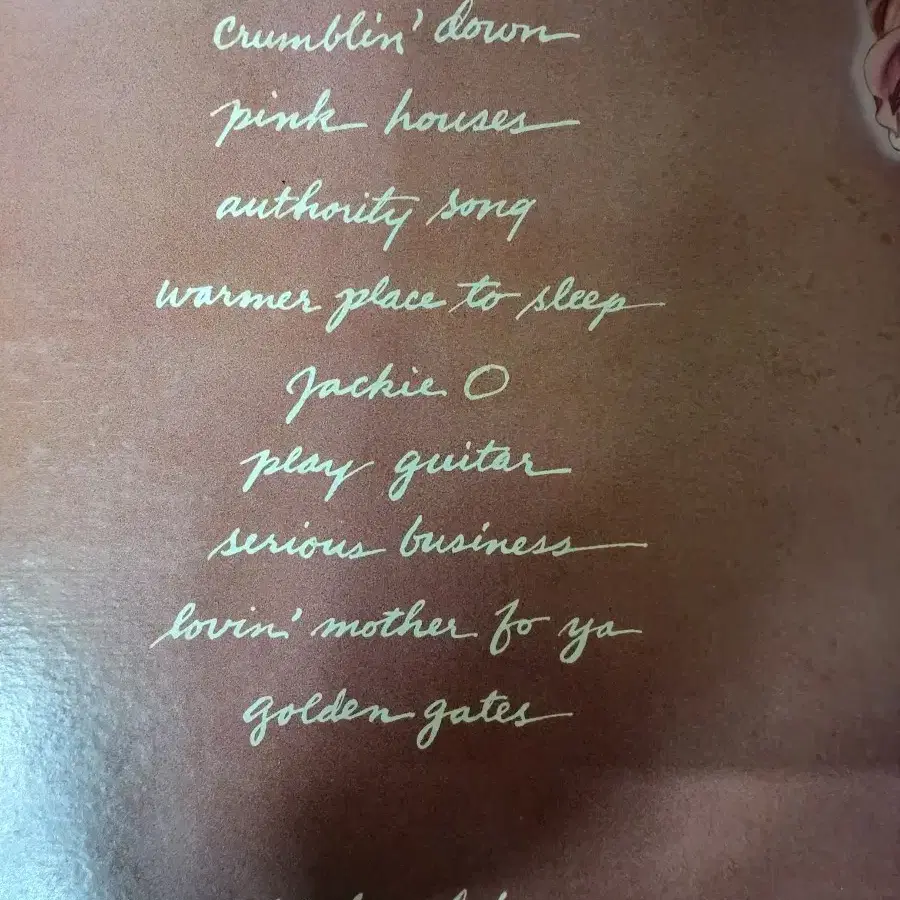 crumblin' down
pink houses
authority song
warmer place to sleep
Jackie O
play guitar
serious business
lovin' mother fo ya
golden gates